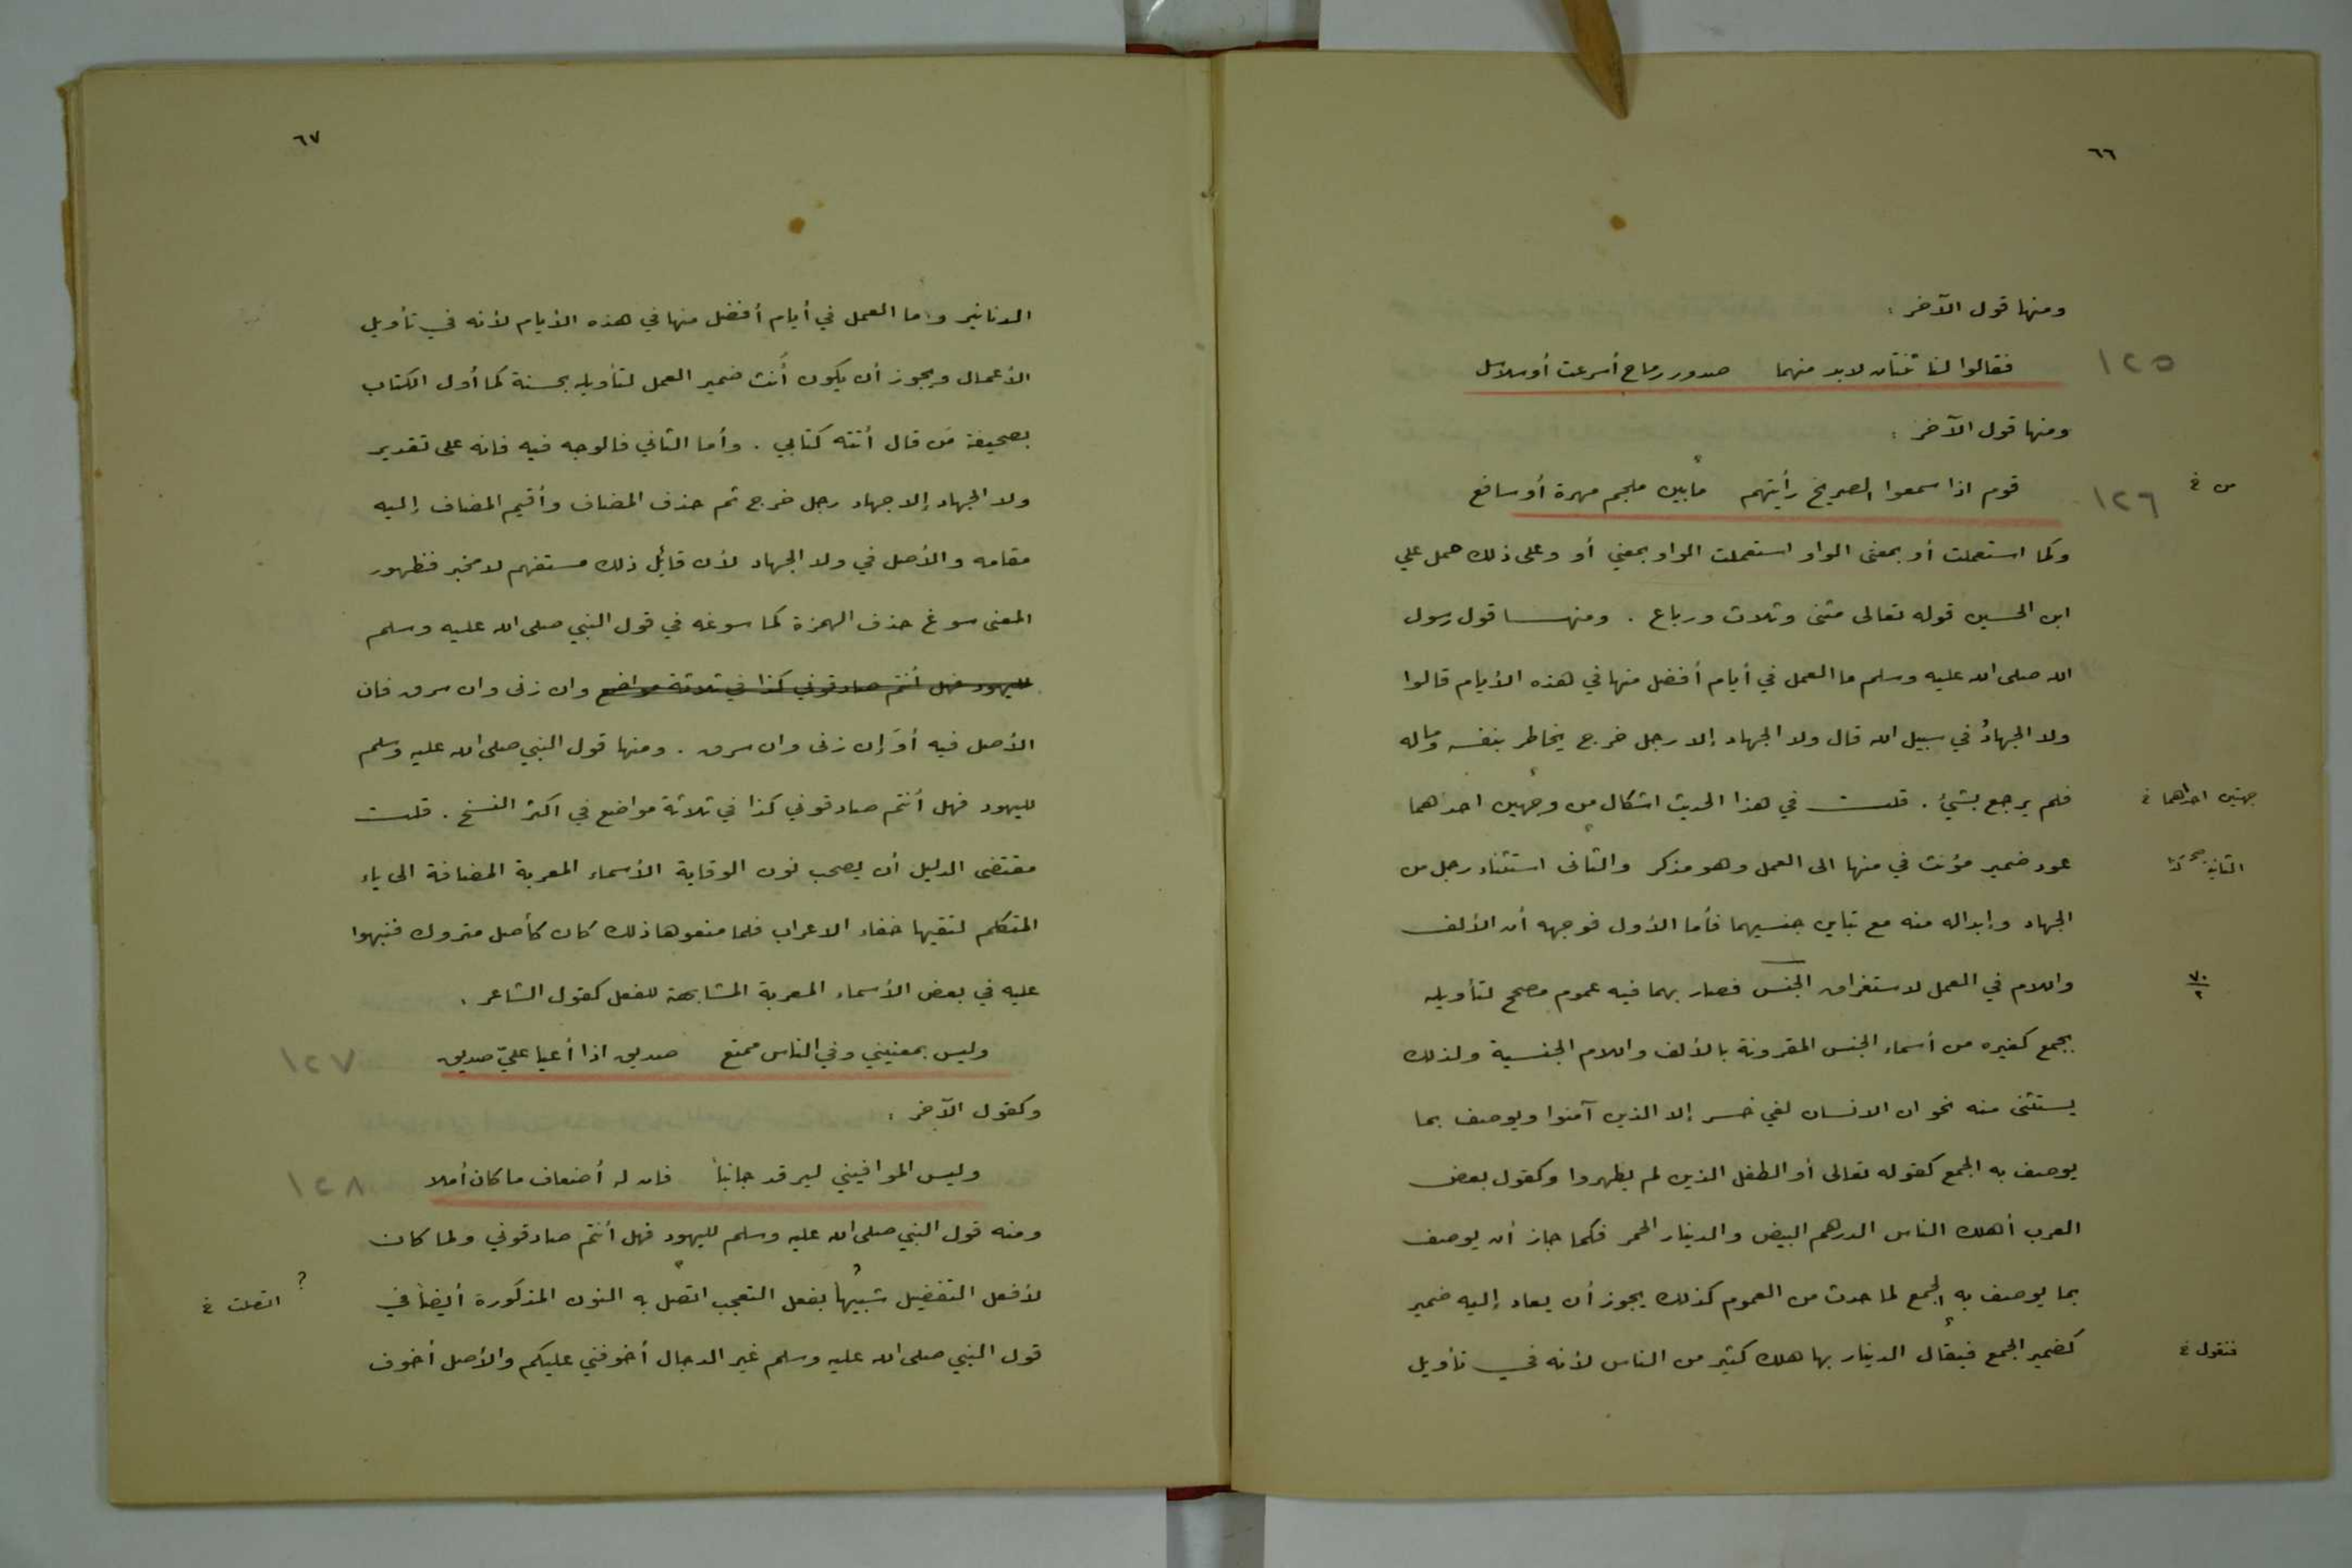 ٦٦
ومنها قول الآخر :
١٢٥ فقالوا لنا ثنتان لابد منهما صدور رماح أسرعت أو سلاسل
ومنها قول الآخر :
١٢٦ قوم اذا سمعوا الصريخ رأيتهم مابين ملجم مهرة أو سافع
من خ
وكما استعملت أو بمعنى الواو استعملت الواو بمعني أو وعلى ذلك حمل علي
ابن الحسين قوله تعالى مثنى وثلاث ورباع . ومنها قول رسول
الله صلى الله عليه وسلم ما العمل في أيام أفضل منها في هذه الأيام قالوا
ولا الجهادُ في سبيل الله قال ولا الجهاد إلا رجل خرج يخاطر بنفسه وماله
فلم يرجع بشيئ . قلت في هذا الحديث اشكال من وجهين احدهما
جهتين احداهما خ
عود ضمير مؤنث في منها الى العمل وهو مذكر والثانى استثناء رجل من
الثانية
الجهاد وإبداله منه مع تباين جنسيهما فأما الأول فوجهه أن الألف
واللام في العمل لاستغراق الجنس فصار بهما فيه عموم مصحح لتأويله
٧٠
٢
بجمع كغيره من أسماء الجنس المقرونة بالألف واللام الجنسية ولذلك
يستثنى منه نحو ان الانسان لفي خسر إلا الذين آمنوا ويوصف بما
يوصف به الجمع كقوله تعالى أو الطفل الذين لم يظهروا وكقول بعض
العرب أهلك الناس الدرهم البيض والدينار الحمر فكما جاز أن يوصف
بما يوصف به الجمع لما حدث من العموم كذلك يجوز أن يعاد إليه ضمير
كضمير الجمع فيقال الدينار بها هلك كثير من الناس لأنه في تأويل
فتقول خ
٦٧
الدنانير وما العمل في أيام أفضل منها في هذه الأيام لأنه في تأويل
الأعمال ويجوز أن يكون أنث ضمير العمل لتأويله بحسنة كما أول الكتاب
بصحيفة مَن قال أتته كتابي . وأما الثاني فالوجه فيه فانه على تقدير
ولا الجهاد إلا جهاد رجل خرج ثم حذف المضاف وأقيم المضاف إليه
مقامه والأصل في ولا الجهاد لأن قائل ذلك مستفهم لا مخبر فظهور
المعنى سوغ حذف الهمزة كما سوغه في قول النبي صلى الله عليه وسلم
لليهود فهل أنتم صادقوني كذا في ثلاثة مواضع وان زنى وان سرق فان
الأصل فيه أوَ إن زنى وان سرق . ومنها قول النبي صلى الله عليه وسلم
لليهود فهل أنتم صادقوني كذا في ثلاثة مواضع في اكثر النسخ . قلت
مقتضى الدليل أن يصحب نون الوقاية الأسماء المعربة المضافة الى ياء
المتكلم لتقيها خفاء الاعراب فلما منعوها ذلك كان كأصل متروك فنبهوا
عليه في بعض الأسماء المعربة المشابهة للفعل كقول الشاعر .
١٢٧ وليس بمعنيني وفي الناس ممتع صديق اذا أعيا عليّ صديق
وكقول الآخر :
١٢٨ وليس الموافيني ليرقد جانباً فان له أضعاف ما كان أملا
ومنه قول النبي صلى الله عليه وسلم لليهود فهل أنتم صادقوني ولما كان
لأفعل التفضيل شبيهاً بفعل التعجب اتصل به النون المذكورة أيضاً في
؟ اتصلت خ
قول النبي صلى الله عليه وسلم غير الدجال أخوفني عليكم والأصل أخوف